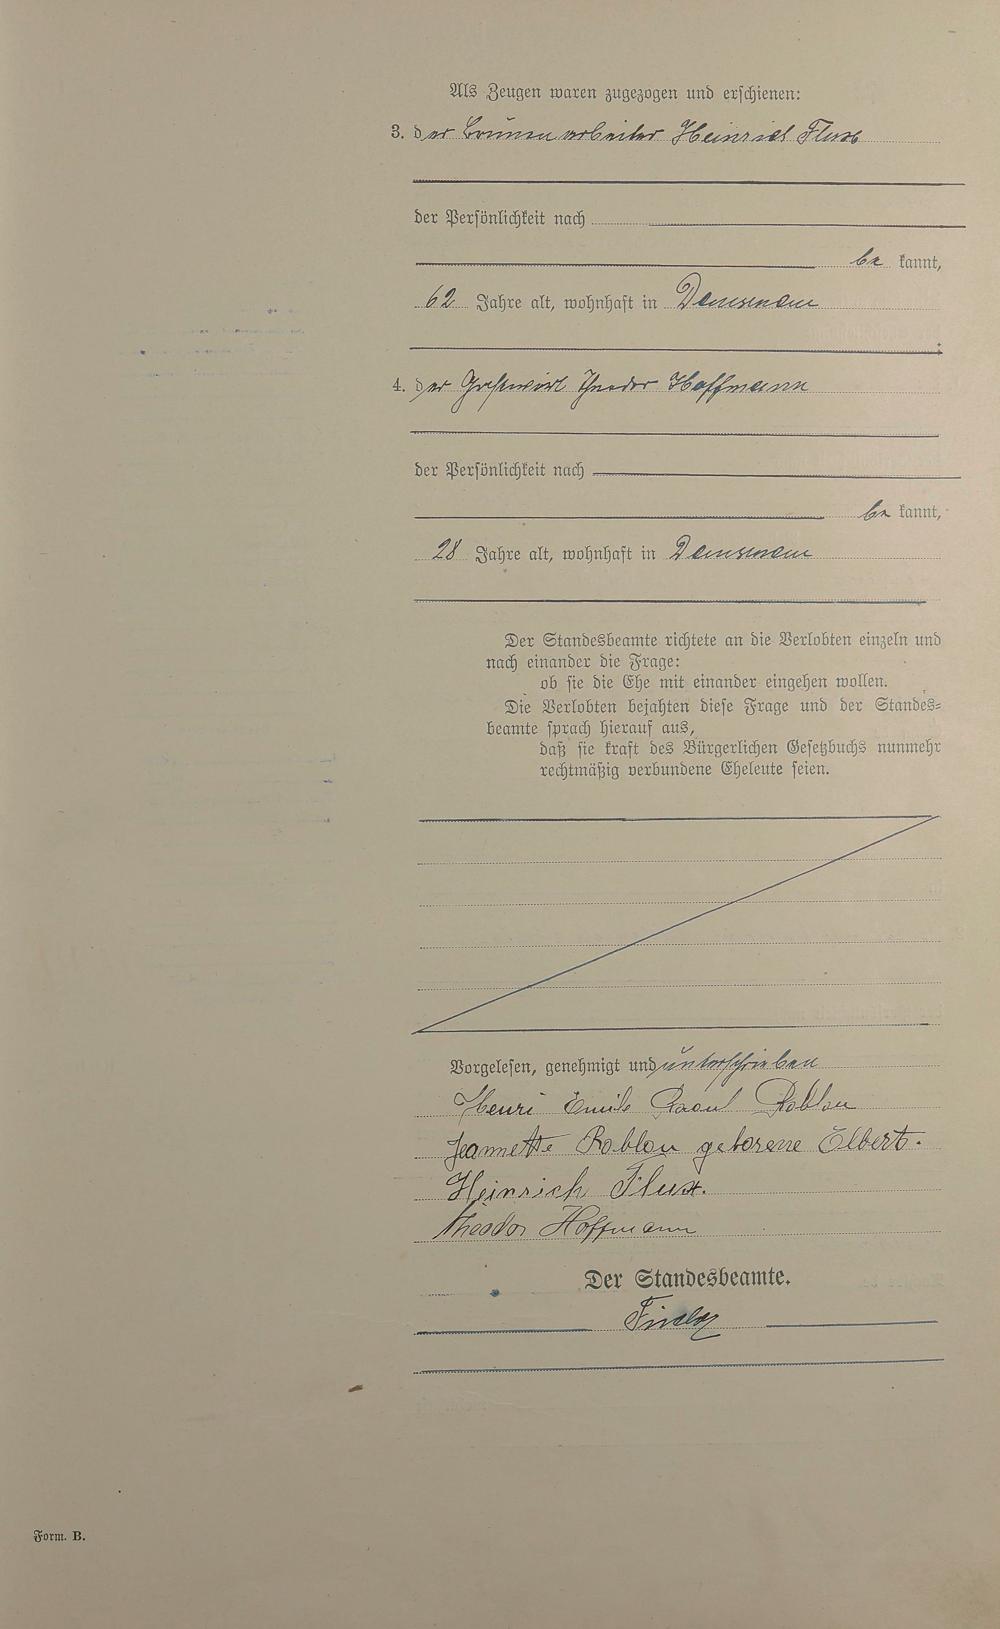 Als Zeugen waren zugezogen und erschienen:
3. der Heinrich Flux
der Persönlichkeit nach
be kannt,
62 Jahre alt, wohnhaft in
4. der Gastwirt Theodor Hoffmann
der Persönlichkeit nach
be kannt,
28 Jahre alt, wohnhaft in
Der Standesbeamte richtete an die Verlobten einzeln und
nach einander die Frage:
ob sie die Ehe mit einander eingehen wollen.
Die Verlobten bejahten diese Frage und der Standes-
beamte sprach hierauf aus,
daß sie kraft des Bürgerlichen Gesetzbuchs nunmehr
rechtmäßig verbundene Eheleute seien.
Vorgelesen, genehmigt und unterschrieben
Henri Emile Raoul Roblou
Jeannette Roblou geborene Elbert.
Heinrich Flux.
Theodor Hoffmann
Der Standesbeamte.
Form. B.